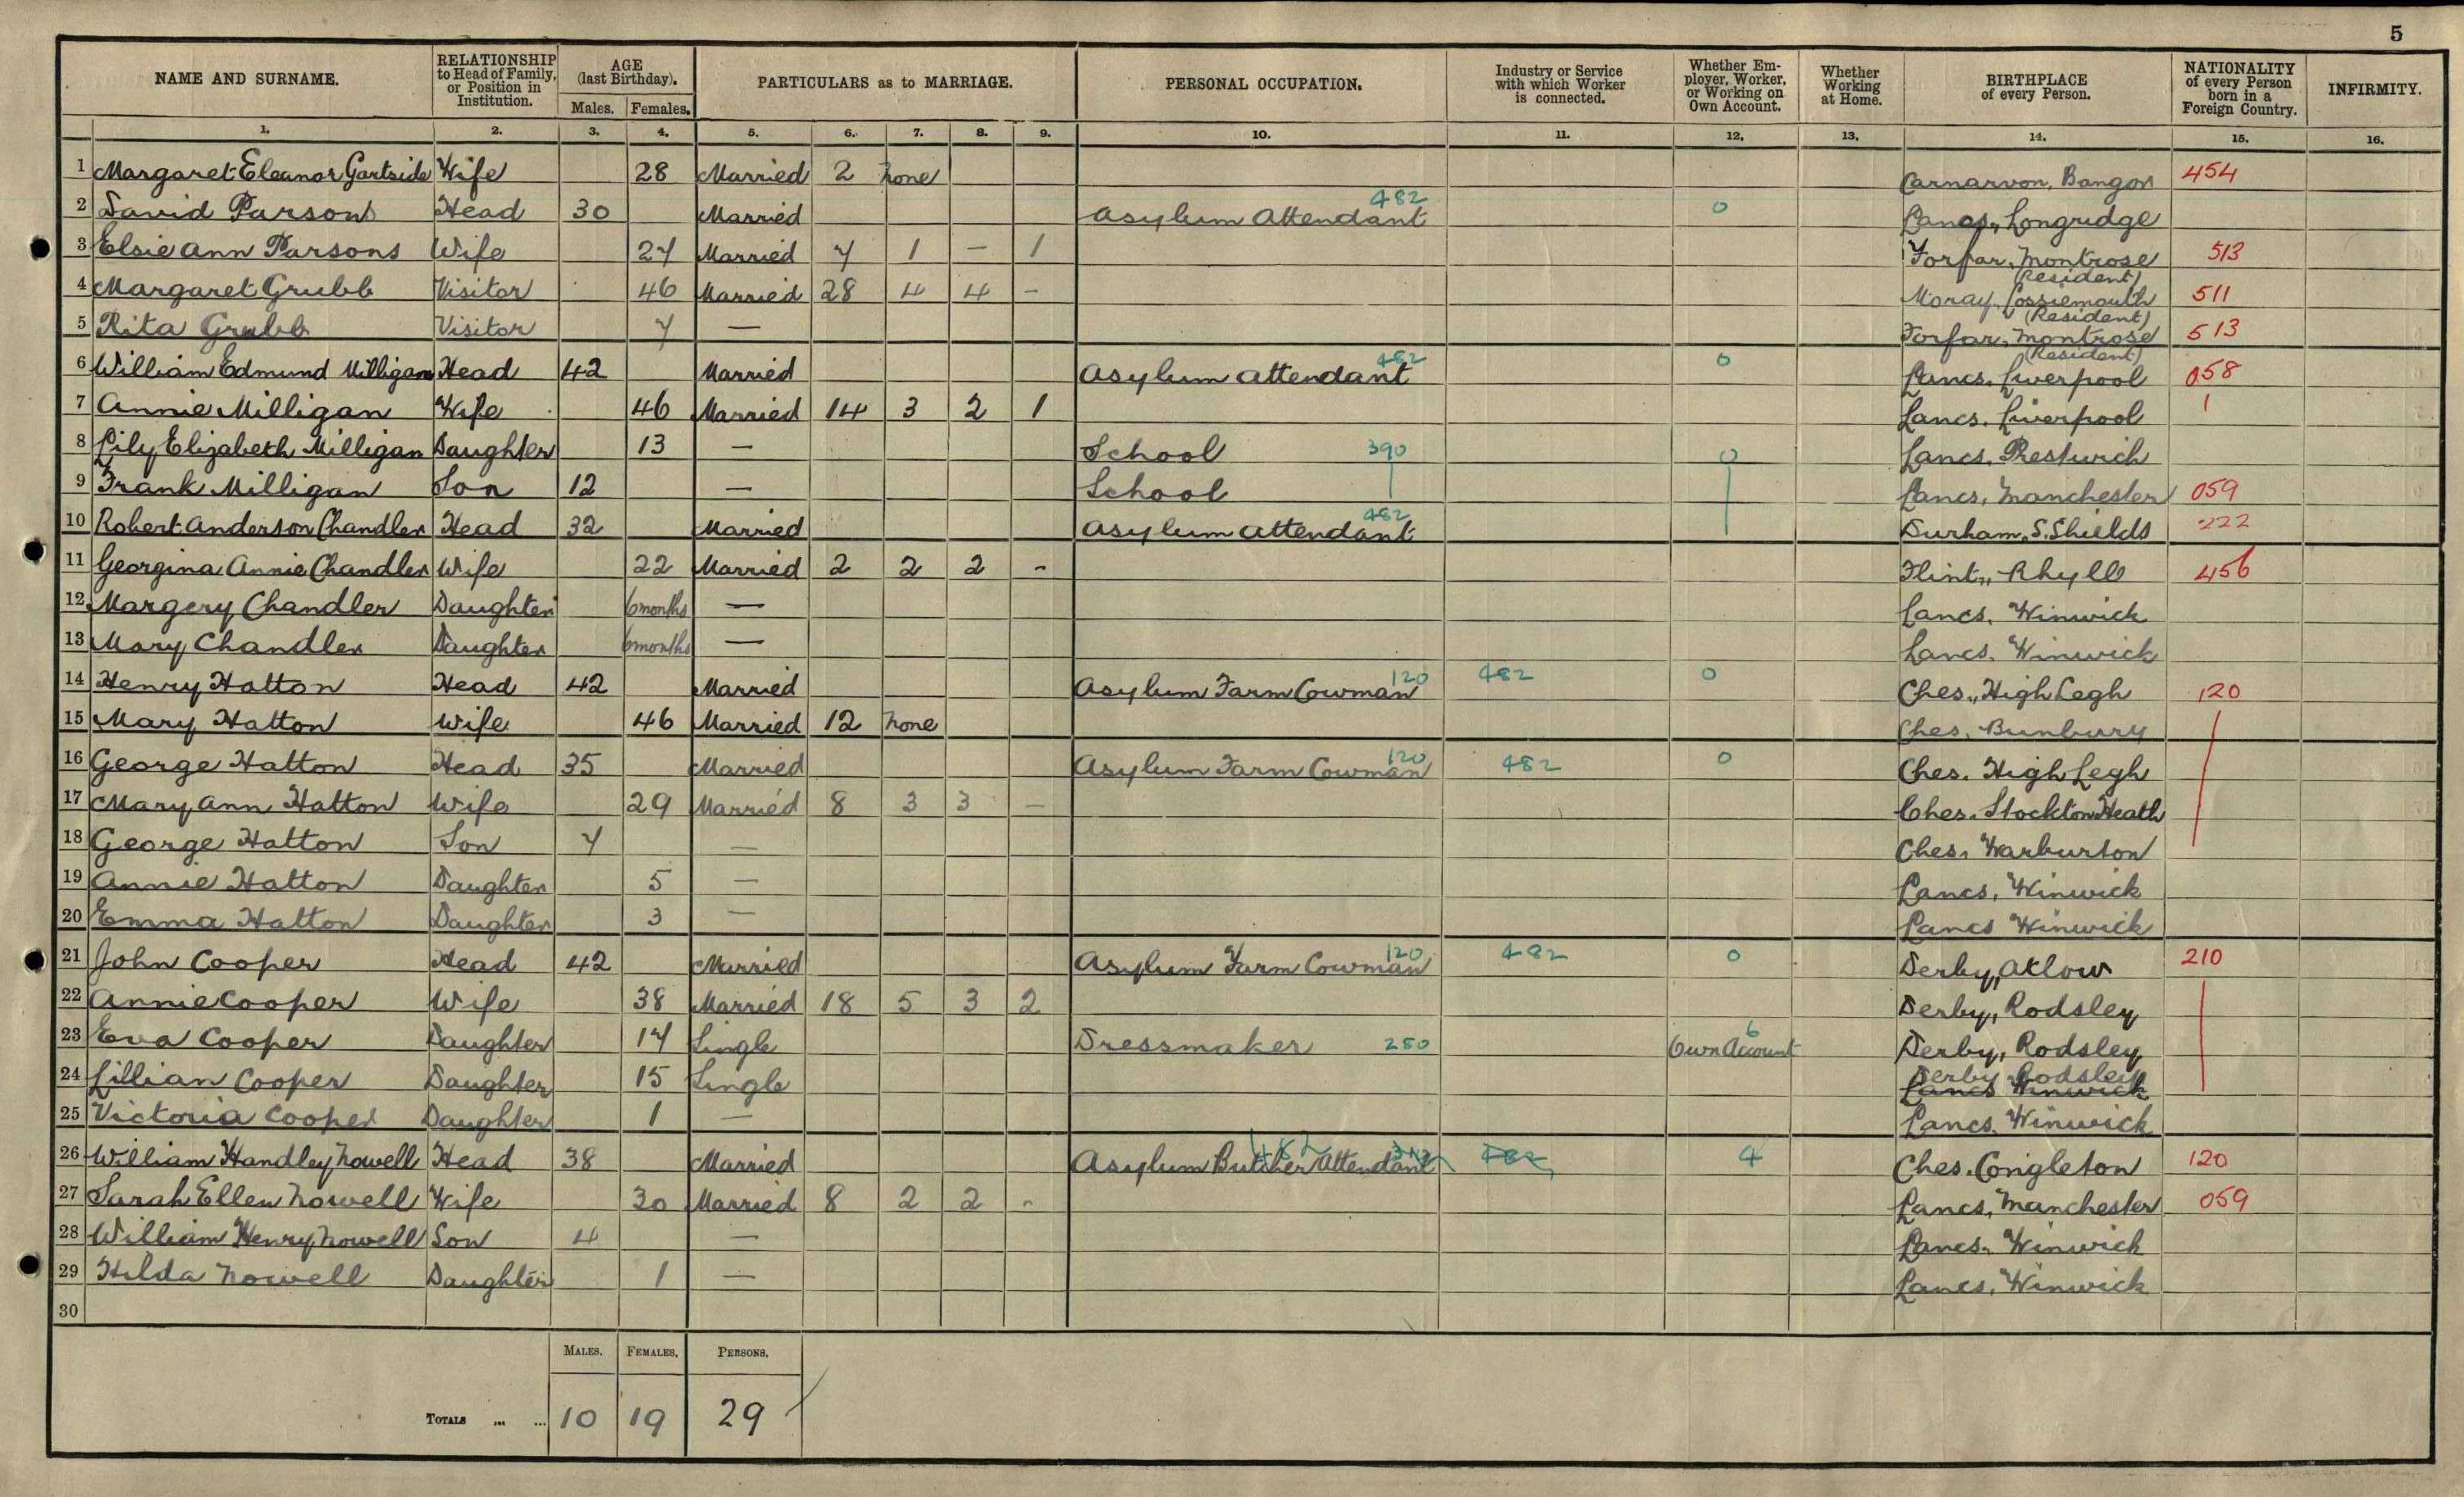 5
NAME AND SURNAME. RELATIONSHIP to Head of Family, or Position in Institution. AGE (last Birthday). Males. Females. PARTICULARS as to MARRIAGE. PERSONAL OCCUPATION. Industry or Service with which Worker is connected. Whether Employer, Worker, or Working on Own Account. Whether Working at Home. BIRTHPLACE of every Person. NATIONALITY of every Person born in a Foreign Country. INFIRMITY.
1. 2. 3. 4. 5. 6. 7. 8. 9. 10. 11. 12. 13. 14. 15. 16.
1 Margaret Eleanor Gartside Wife 28 Married 2 none Carnarvon, Bangor 454
2 David Parsons Head 30 Married Asylum Attendant 482 0 Lancs., Longridge
3 Elsie Ann Parsons Wife 27 Married 7 1 – 1 Forfar, Montrose (Resident) 513
4 Margaret Grubb Visitor 46 Married 28 4 4 – Moray, Lossiemouth (Resident) 511
5 Rita Grubb Visitor 7 — Forfar, Montrose (Resident) 513
6 William Edmund Milligan Head 42 Married Asylum Attendant 482 0 Lancs. Liverpool 058
7 Annie Milligan Wife 46 Married 14 3 2 1 Lancs. Liverpool
8 Lily Elizabeth Milligan Daughter 13 — School 390 0 Lancs. Prestwich
9 Frank Milligan Son 12 — School Lancs, Manchester 059
10 Robert Anderson Chandler Head 32 Married Asylum Attendant 482 Durham, S. Shields 222
11 Georgina Annie Chandler Wife 22 Married 2 2 2 - Flint, Rhyll 456
12 Margery Chandler Daughter 6 months — Lancs. Winwick
13 Mary Chandler Daughter 6 months — Lancs. Winwick
14 Henry Hatton Head 42 Married Asylum Farm Cowman 120 482 0 Ches., High Legh 120
15 Mary Hatton Wife 46 Married 12 none Ches. Bunbury
16 George Hatton Head 35 Married Asylum Farm Cowman 120 482 0 Ches. High Legh
17 Mary Ann Hatton Wife 29 Married 8 3 3 – Ches. Stockton Heath
18 George Hatton Son 7 — Ches. Warburton
19 Annie Hatton Daughter 5 — Lancs. Winwick
20 Emma Hatton Daughter 3 — Lancs Winwick
21 John Cooper Head 42 Married Asylum Farm Cowman 120 482 0 Derby, Atlow 210
22 Annie Cooper Wife 38 Married 18 5 3 2 Derby, Rodsley
23 Eva Cooper Daughter 17 Single Dressmaker 280 6 Own Account Derby, Rodsley
24 Lillian Cooper Daughter 15 Single Derby Rodsley Lancs Winwick
25 Victoria Cooper Daughter 1 — Lancs. Winwick
26 William Handley Nowell Head 38 Married Asylum Butcher Attendant 482 482 4 Ches. Congleton 120
27 Sarah Ellen Nowell Wife 30 Married 8 2 2 - Lancs, Manchester 059
28 William Henry Nowell Son 4 — Lancs. Winwick
29 Hilda Nowell Daughter 1 — Lancs. Winwick
30
MALES. FEMALES. PERSONS.
TOTALS ... ... 10 19 29